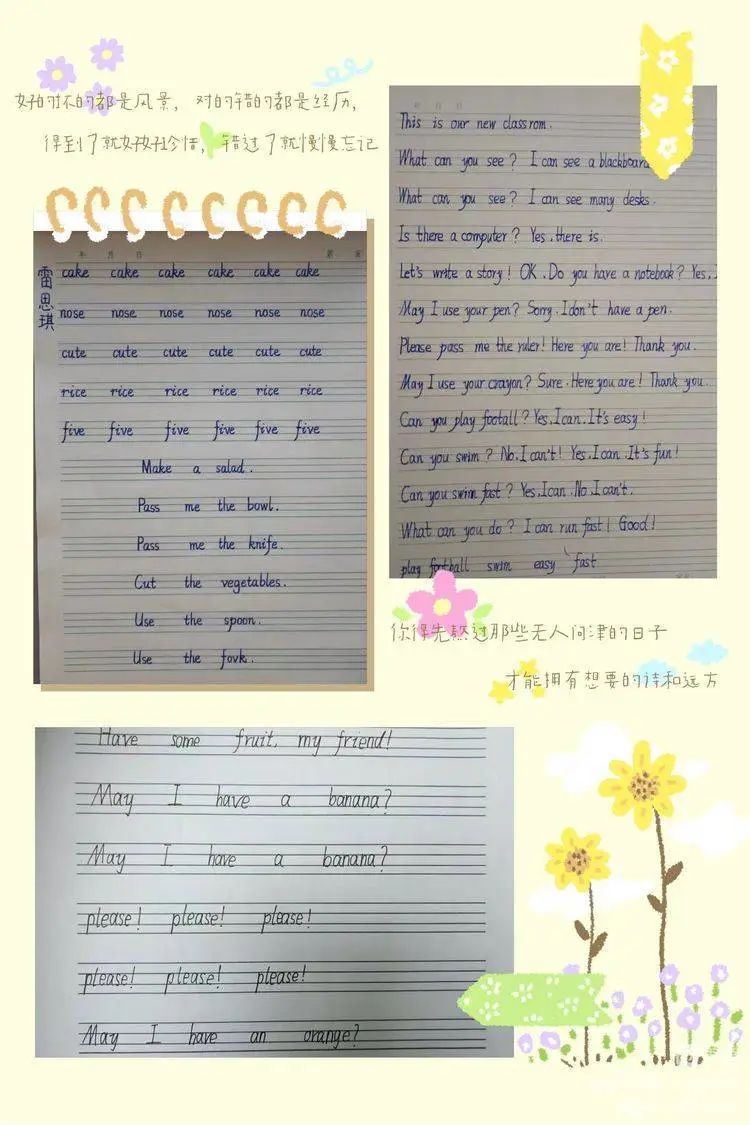 好的坏的都是风景，对的错的都是经历，
得到了就好好珍惜，错过了就慢慢忘记
年 月 日
雷思琪
cake cake cake cake cake cake
nose nose nose nose nose nose
cute cute cute cute cute cute
rice rice rice rice rice rice
five five five five five five
Make a salad.
Pass me the bowl.
Pass me the knife.
Cut the vegetables.
Use the spoon.
Use the fovk.
This is our new classrom.
What can you see? I can see a blackboard
What can you see? I can see many desks.
Is there a computer? Yes, there is.
Let's write a story! OK. Do you have a notebook? Yes,
May I use your pen? Sorry. I don't have a pen.
Please pass me the ruler! Here you are! Thank you.
May I use your crayon? Sure. Here you are! Thank you.
Can you play footall? Yes, I can. It's easy!
Can you swim? No, I can't! Yes, I can. It's fun!
Can you swim fast? Yes, I can. No, I can't.
What can you do? I can run fast! Good!
play football swim easy fast
你得先熬过那些无人问津的日子
才能拥有想要的诗和远方
Have some fruit, my friend!
May I have a banana?
May I have a banana?
please! please! please!
please! please! please!
May I have an orange?